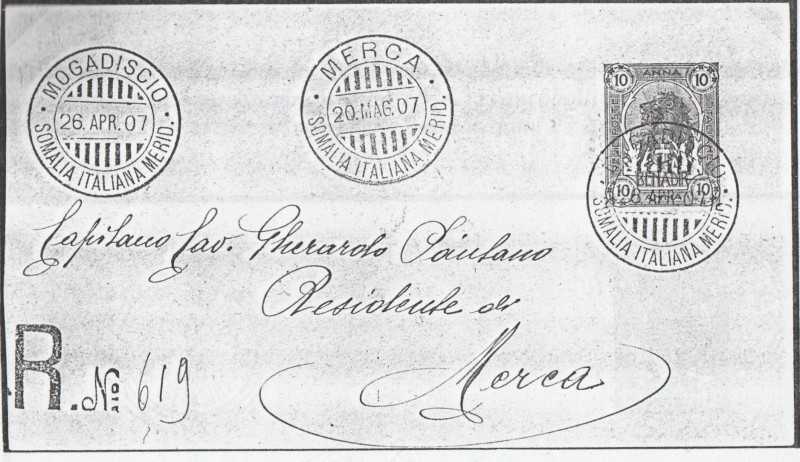 MOGADISCIO
26. APR. 07
SOMALIA ITALIANA MERID.
MERCA
20. MAG. 07
SOMALIA ITALIANA MERID.
10 ANNA 10
BENADIR
10 10
SOMALIA ITALIANA MERID.
Capitano Cav. Gherardo Pàntano
Residente di
Merca
R. No 619